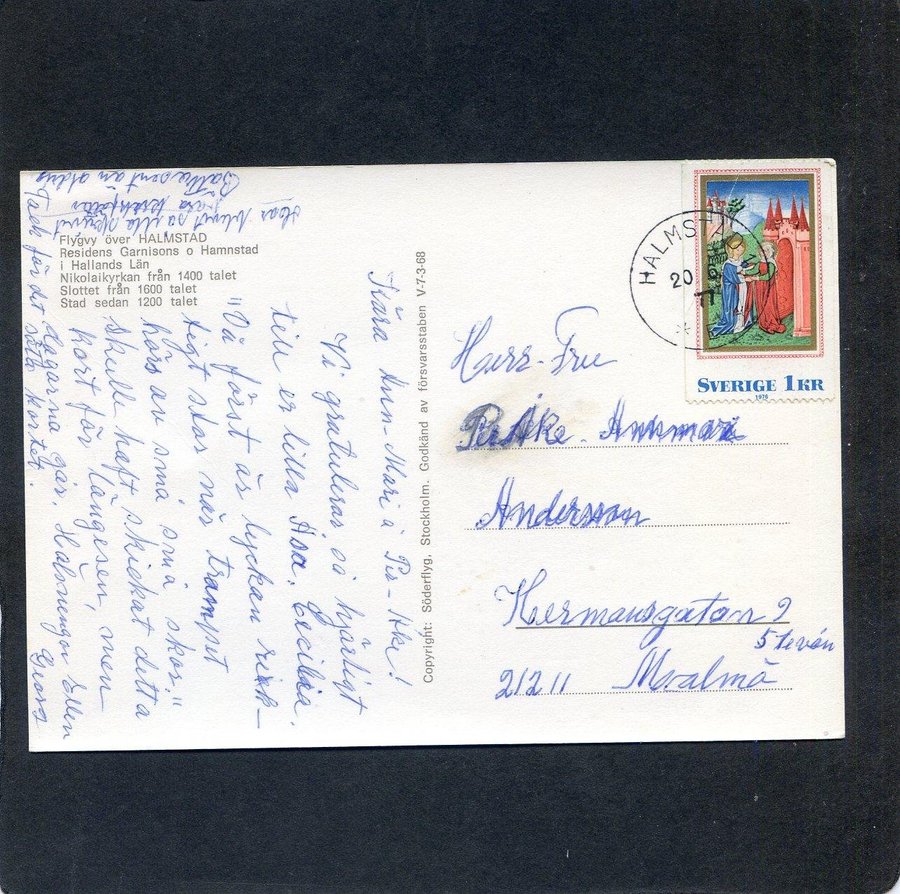 Flygvy över HALMSTAD
Residens Garnisons o Hamnstad
i Hallands Län
Nikolaikyrkan från 1400 talet
Slottet från 1600 talet
Stad sedan 1200 talet
Kära Ann-Mari å Per-Åke!
Vi gratulerar så hjärtligt
till er lilla Åsa. Cecilia.
"Då först är lyckan rik-
tigt stor när trampet
hörs av små, små skor"
Skulle haft skickat detta
kort för längesen, men
dagarna går. Hälsningar Ellen
Georg
Tack för det söta kortet.
Copyright: Söderflyg, Stockholm. Godkänd av försvarsstaben V-7-3-68
HALMSTAD
20
77
SVERIGE 1 KR
1976
Herr-Fru
Per Åke - Annmari
Andersson
Hermansgatan 9
5 tevån
212 11 Malmö